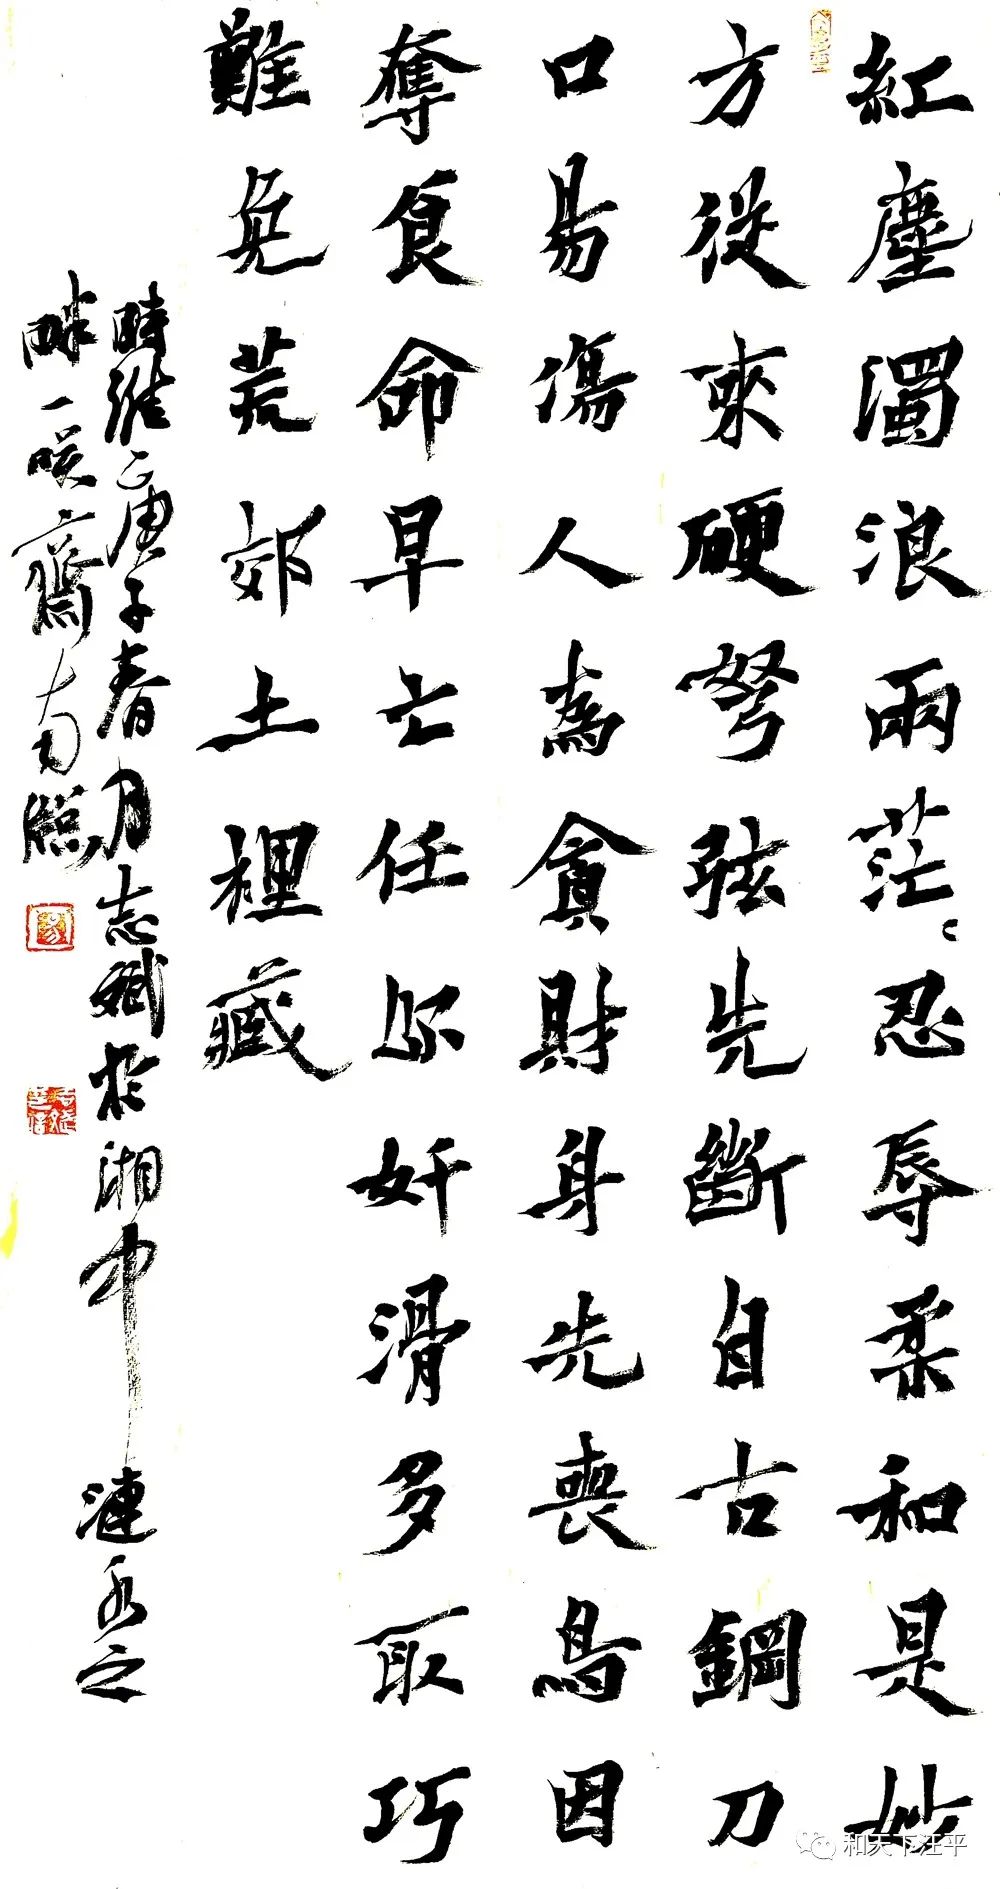 紅塵濁浪兩茫〻忍辱柔和是妙
方從來硬弩弦先斷自古鋼刀
口易傷人為貪財身先喪鳥因
奪食命早亡任尔奸滑多取巧
難免荒郊土裡藏
時維庚子春月志斌於湘中漣水之
畔一笑齋南窗
和天下汪平